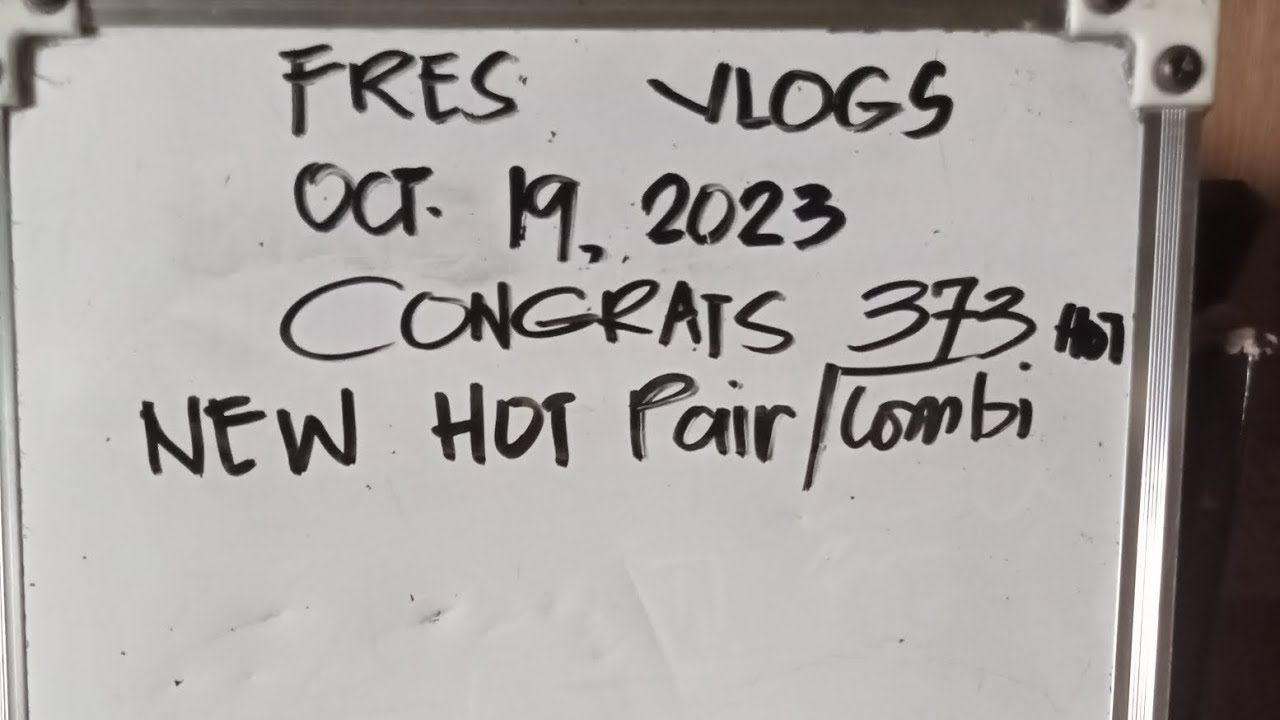 FRES VLOGS
OCT. 19, 2023
CONGRATS 373 HOT
NEW HOT Pair/Combi